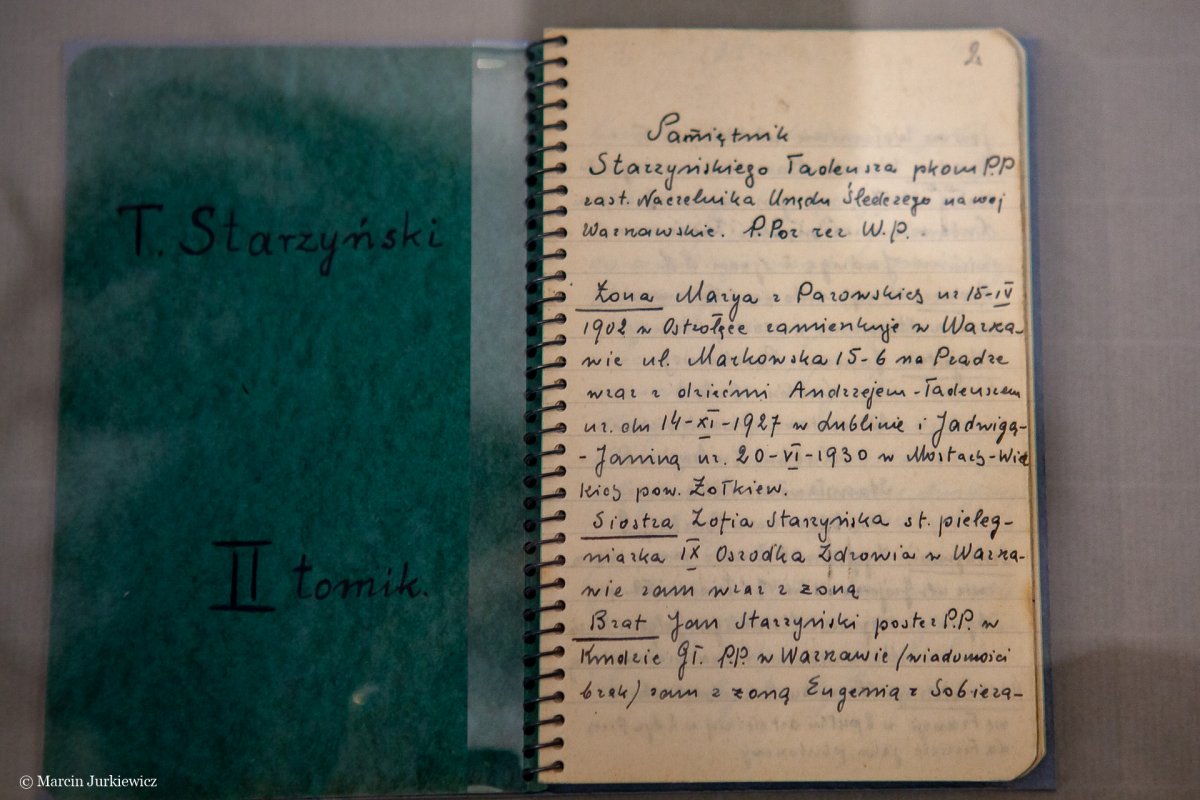 T. Starzyński
II tomik.
2.
Pamiętnik
Starzyńskiego Tadeusza pkom P.P
zast. Naczelnika Urzędu Śledczego na woj
Warszawskie. P.Por rez W.P.
Żona Marya z Parowskich ur 15-IV
1902 w Ostrołęce zamieszkuje w Warsza-
wie ul. Markowska 15-6 na Pradze
wraz z dziećmi Andrzejem-Tadeuszem
ur. dn 14-XI-1927 w Lublinie i Jadwigą-
-Janiną ur. 20-VI-1930 w Mostach-Wiel
kich pow. Żółkiew.
Siostra Zofia Starzyńska st. pielęg-
niarka IX Ośrodka Zdrowia w Warsza-
wie zam wraz z żoną
Brat Jan Starzyński poster P.P. w
Kmdzie Gł. P.P. w Warszawie (wiadomości
brak) zam z żoną Eugenią z Sobierą-
© Marcin Jurkiewicz